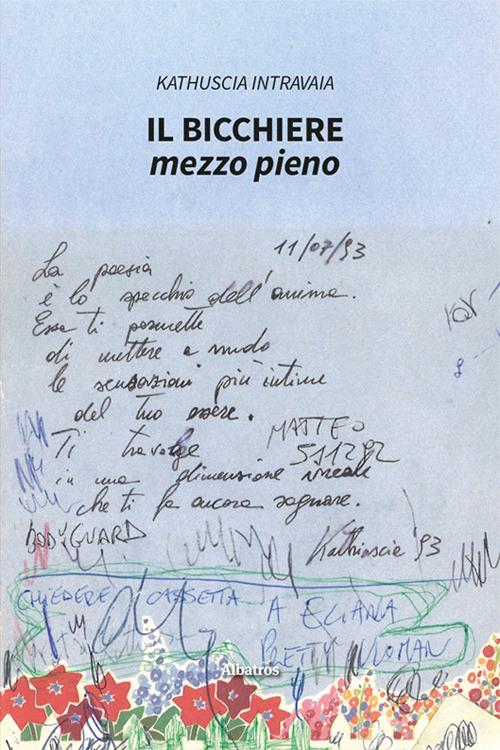 KATHUSCIA INTRAVAIA
IL BICCHIERE
mezzo pieno
11/07/93
La poesia
è lo specchio dell'anima.
Essa ti permette
di mettere a nudo
le sensazioni più intime
del tuo essere.
MATTEO
511292
Ti travolge
in una dimensione irreale
che ti fa ancora sognare.
BODYGUARD
Kathiuscia '93
CHIEDERE CASSETTA A ELIANA
PRETTY WOMAN
Albatros